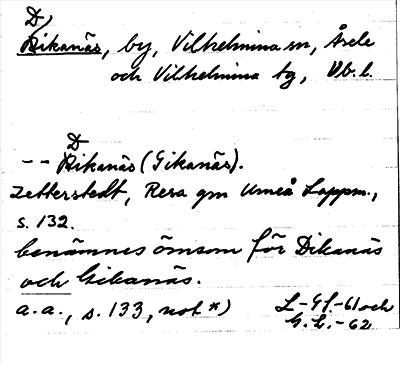 D
Rikanäs, by, Vilhelmina sn, Åsele
och Vilhelmina tg, Vb. l.
D
-- Rikanäs (Gikanäs).
Zetterstedt, Resa gm Umeå Lappm.,
s. 132.
benämnes ömsom för Dikanäs
och Gikanäs.
a.a., s. 133, not *)
L-Gf.-61 och
G.L.-62